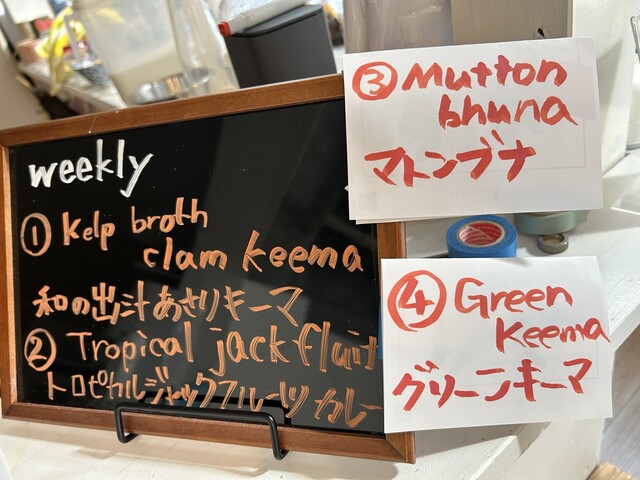 weekly
① Kelp broth
clam keema
和の出汁あさりキーマ
② Tropical jackfluit
トロピカルジャックフルーツカレー
③ Mutton
bhuna
マトンブナ
④ Green
Keema
グリーンキーマ